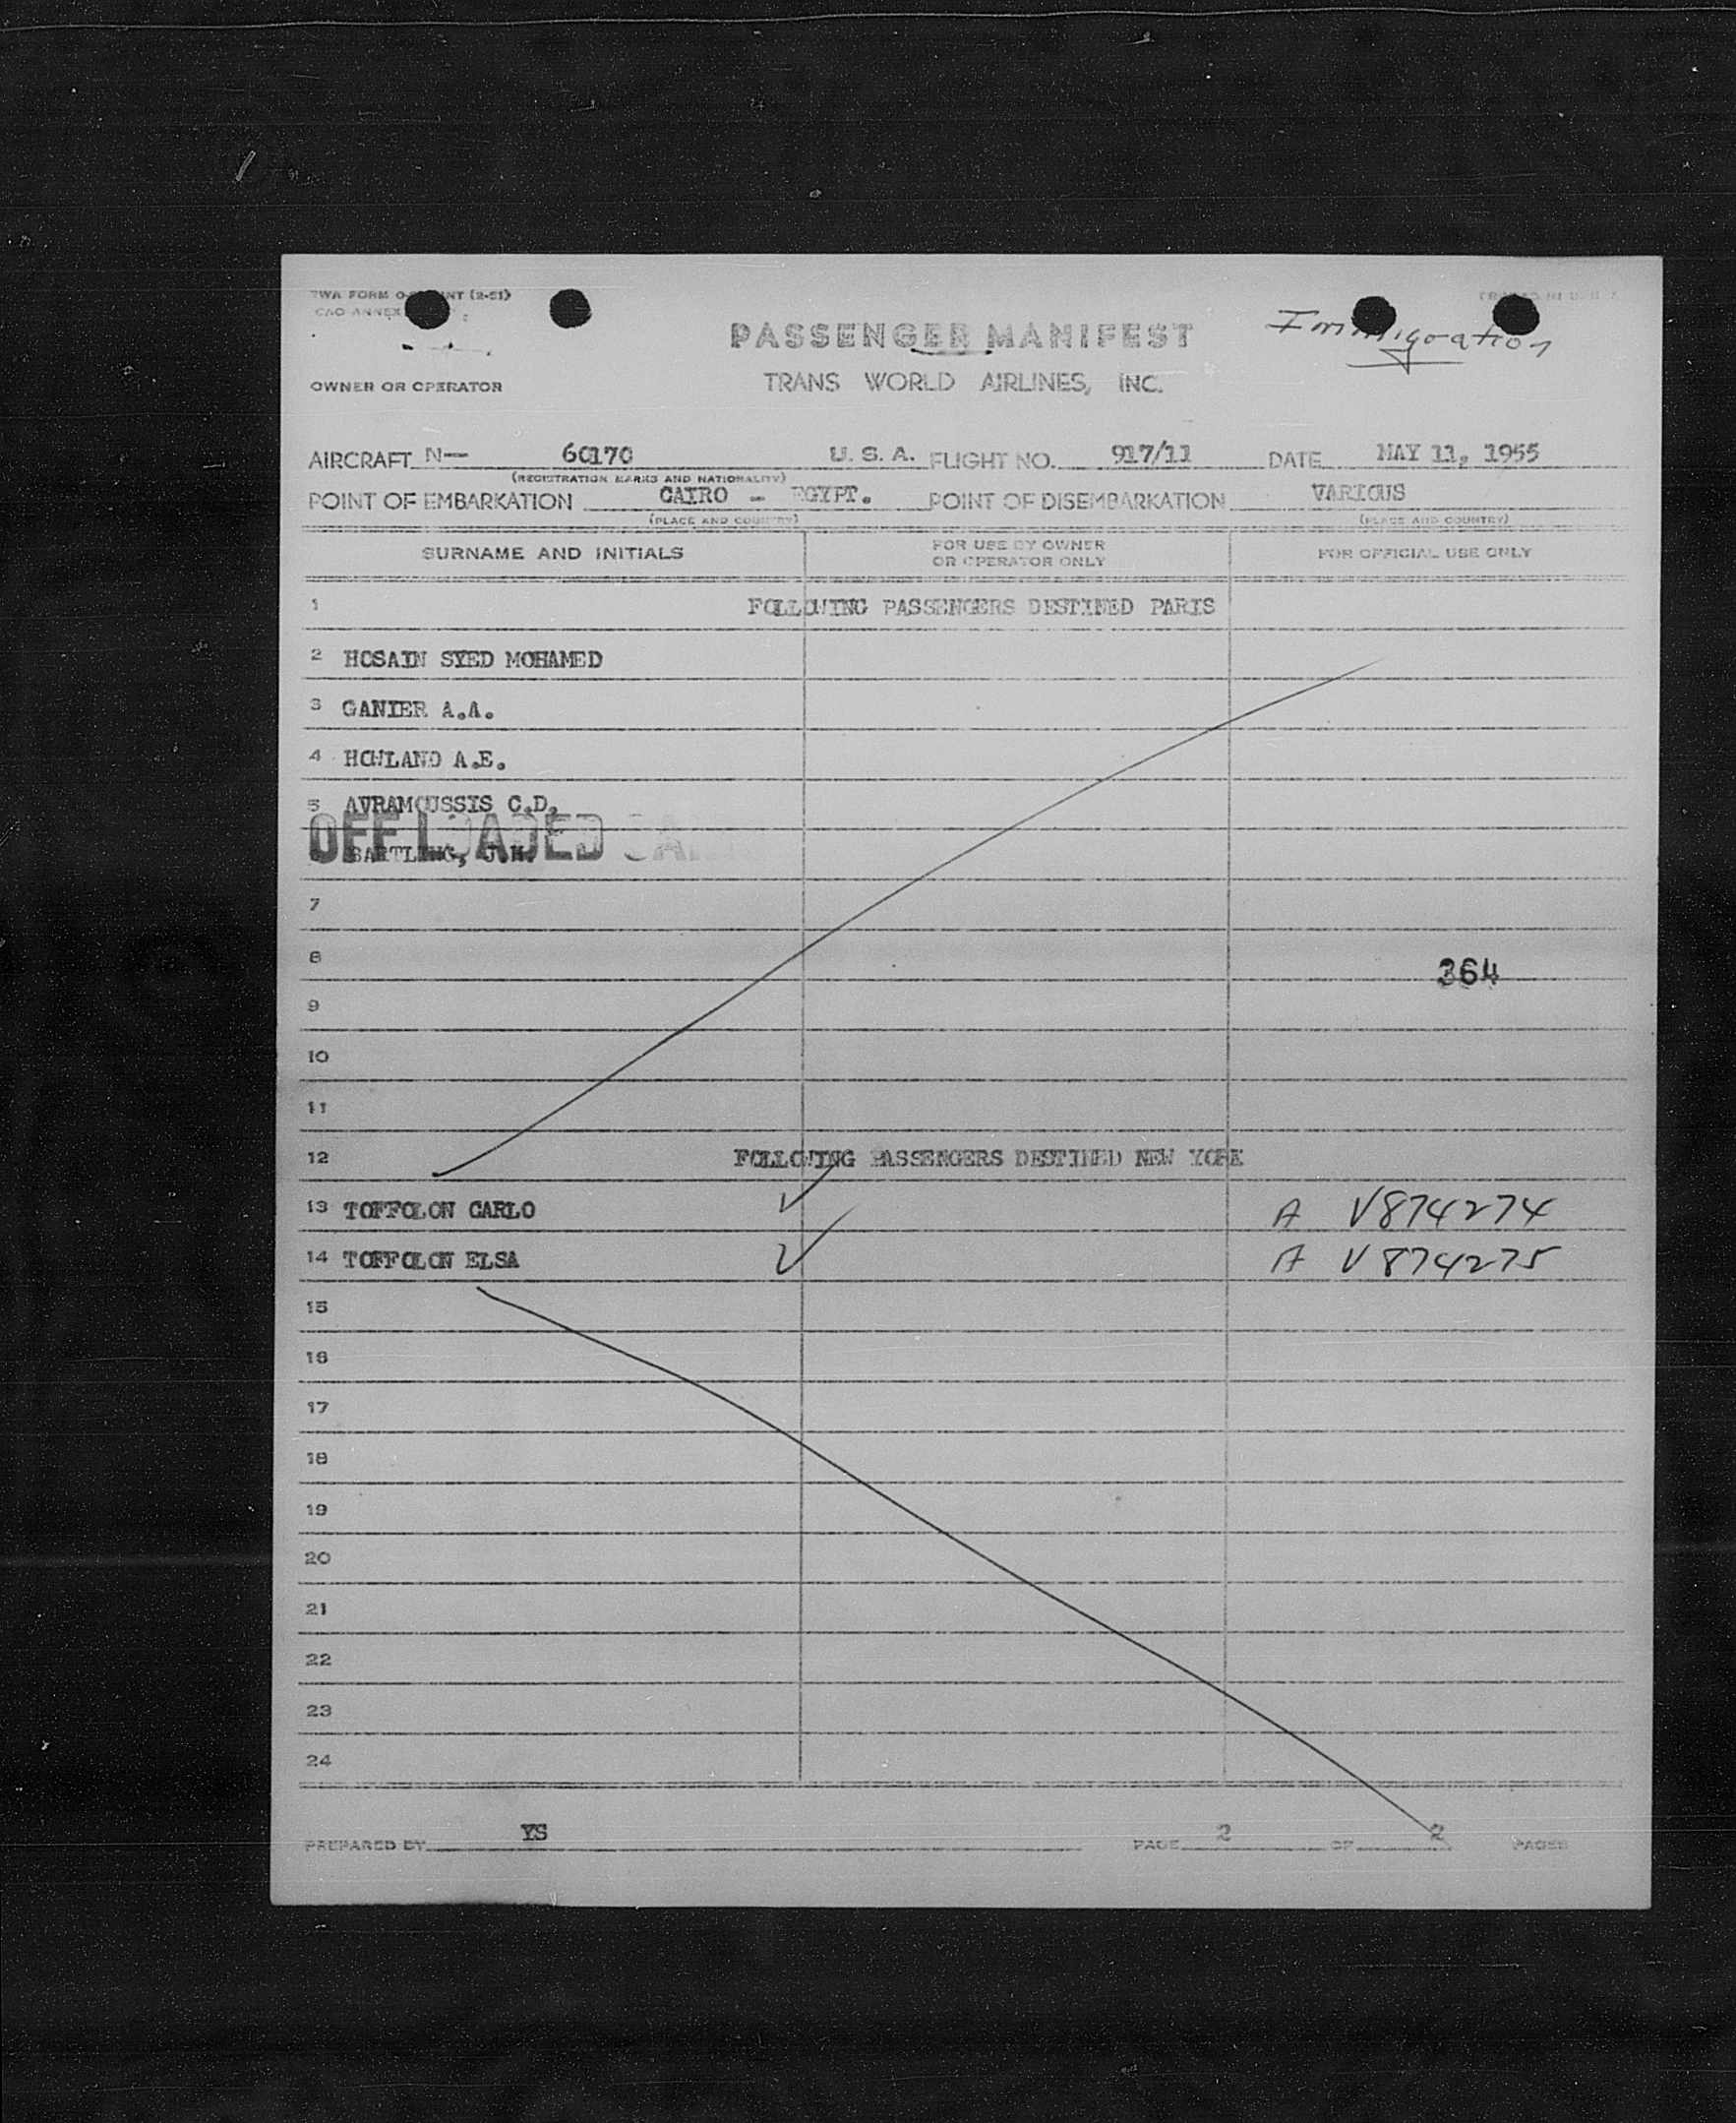 TWA FORM O- INT (2-51)
ICAO ANNEX
PASSENGER MANIFEST
Immigration
OWNER OR OPERATOR TRANS WORLD AIRLINES, INC.
AIRCRAFT N— 60170 U. S. A. FLIGHT NO. 917/11 DATE MAY 11, 1955
(REGISTRATION MARKS AND NATIONALITY)
POINT OF EMBARKATION CAIRO - EGYPT. POINT OF DISEMBARKATION VARIOUS
(PLACE AND COUNTRY) (PLACE AND COUNTRY)
SURNAME AND INITIALS FOR USE BY OWNER OR OPERATOR ONLY FOR OFFICIAL USE ONLY
1 FOLLOWING PASSENGERS DESTINED PARIS
2 HOSAIN SYED MOHAMED
3 GANIER A.A.
4 HOWLAND A.E.
5 AVRAMOUSSIS C.D.
OFF LOADED
6 BARTLING, J.H.
7
8 364
9
10
11
12 FOLLOWING PASSENGERS DESTINED NEW YORK
13 TOFFOLON CARLO A V874274
14 TOFFOLON ELSA A V874275
15
16
17
18
19
20
21
22
23
24
PREPARED BY YS PAGE 2 OF 2 PAGES